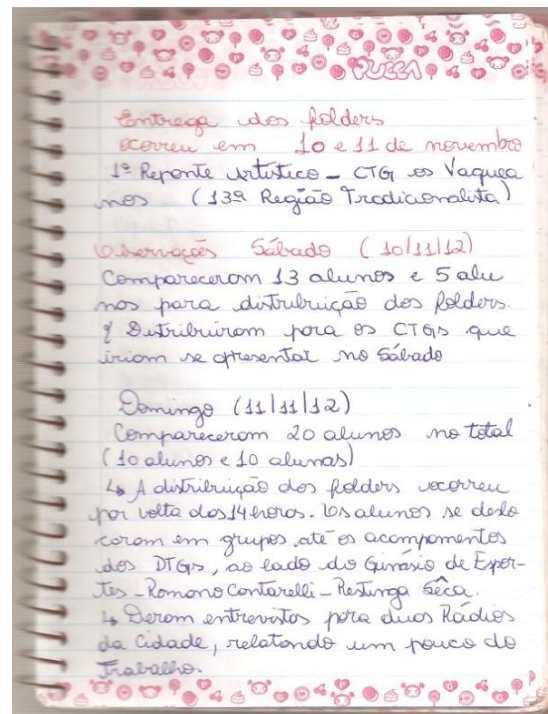 PUCCA
Entrega dos folders
ocorreu em 10 e 11 de novembro
1º Reponte Artístico - CTG os Vaquea
nos (13ª Região Tradicionalista)
Observações Sábado (10/11/12)
Compareceram 13 alunos e 5 alu
nos para distribuição dos folders.
Distribuiram para os CTGs que
iriam se apresentar no Sábado
Domingo (11/11/12)
Compareceram 20 alunos no total
(10 alunos e 10 alunas)
↳ A distribuição dos folders ocorreu
por volta das 14 horas. Os alunos se deslo
caram em grupos até os acampamentos
dos DTGs, ao lado do Ginásio de Espor-
tes - Romano Cantarelli - Restinga Sêca.
↳ Deram entrevistas para duas Rádios
da Cidade, relatando um pouco do
Trabalho.